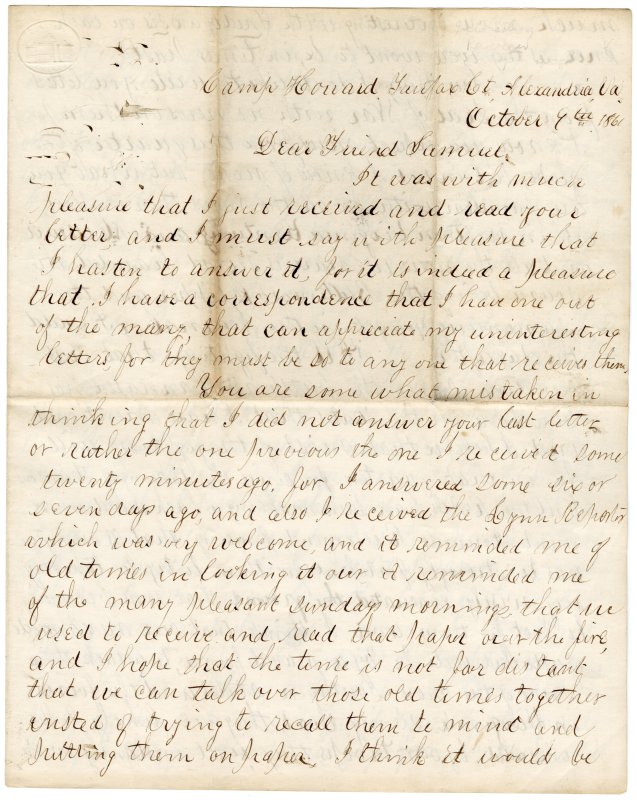 Camp Howard Fairfax Ct. Alexandria Va
October 9th 1861
Dear Friend Samuel,
It was with much
pleasure that I just received and read your
letter, and I must say with pleasure that
I hasten to answer it, for it is indeed a pleasure
that I have a correspondence that I have one out
of the many, that can appreciate my uninteresting
letters, for they must be so to any one that receives them,
You are some what mistaken in
thinking that I did not answer your last letter
or rather the one previous the one I received some
twenty minutes ago, for I answered some six or
seven days ago, and also I received the Lynn Reporter
which was very welcome, and it reminded me of
old times in looking it our it reminded me
of the many pleasant sunday mornings that we
used to receive and read that paper over the fire,
and I hope that the time is not far distant
that we can talk over those old times together
insted of trying to recall them to mind and
putting them on paper, I think it would be